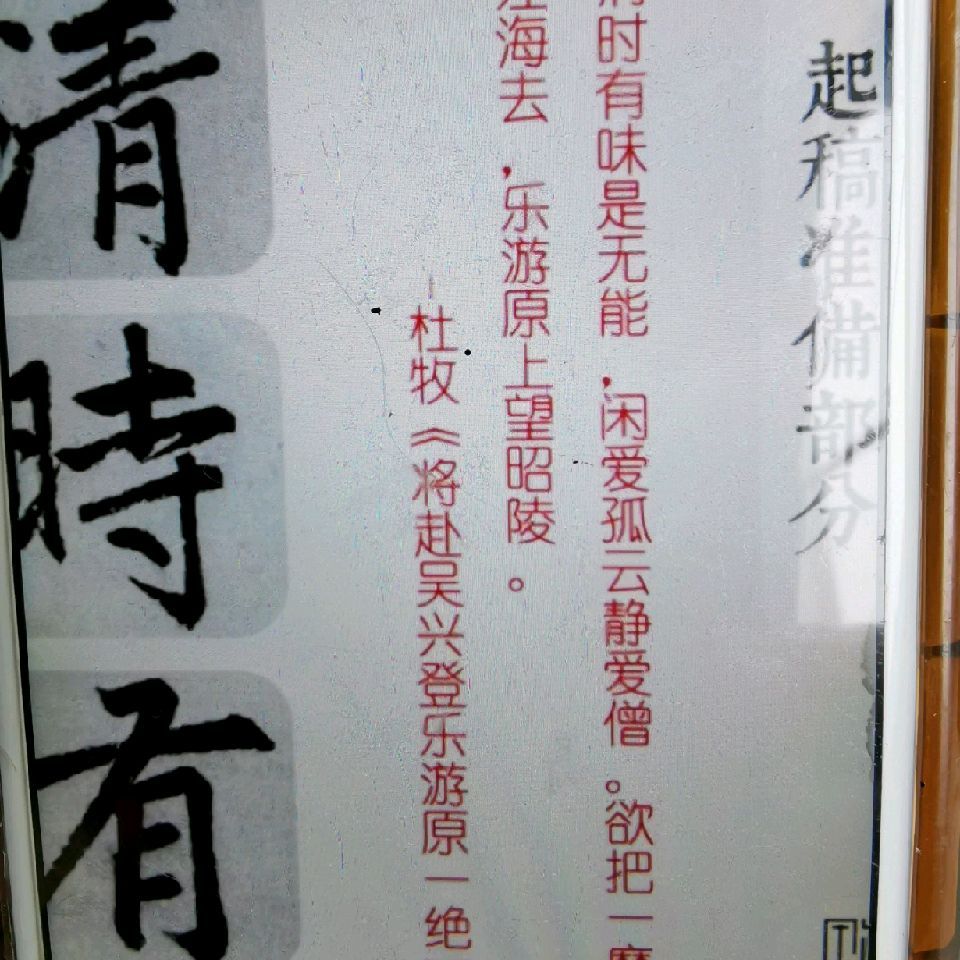 起稿准备部分
时有味是无能，闲爱孤云静爱僧。欲把一
海去，乐游原上望昭陵。
杜牧《将赴吴兴登乐游原一绝
清時有